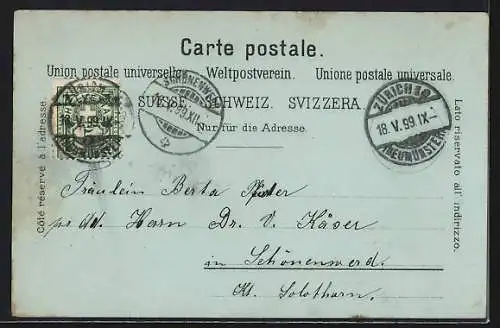 Carte postale.
Union postale universelle. Weltpostverein. Unione postale universale.
SUISSE. SCHWEIZ. SVIZZERA.
Nur für die Adresse.
Côté réservé à l'adresse.
Lato riservato all' indirizzo.
ZÜRICH
V.99.IX
NEUMÜNSTER
SCHÖNENWERD
V.99.XII
ZÜRICH 10
18.V.99.IX-
(NEUMÜNSTER)
Fräulein Berta
pr. Ad. Herrn Dr. V. Käser
in Schönenwerd.
Kt. Solothurn.